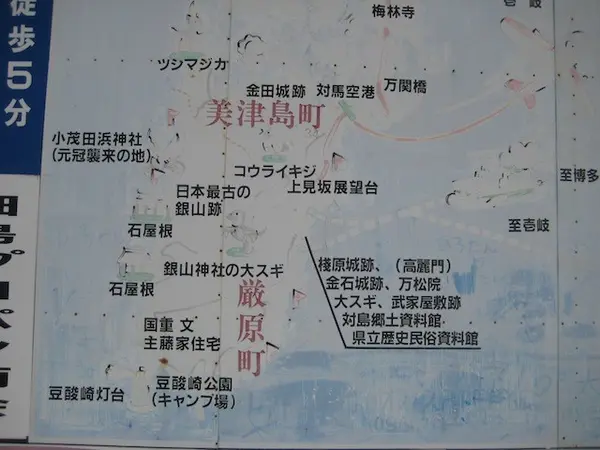 徒歩5分
梅林寺
壱岐
ツシマジカ
金田城跡
対馬空港
万関橋
美津島町
小茂田浜神社
(元冠襲来の地)
コウライキジ
上見坂展望台
至博多
日本最古の
銀山跡
石屋根
至壱岐
銀山神社の大スギ
石屋根
厳原町
棧原城跡、(高麗門)
金石城跡、万松院
大スギ、武家屋敷跡
対島郷土資料館
県立歴史民俗資料館
国重文
主藤家住宅
豆酸崎灯台
豆酸崎公園
(キャンプ場)